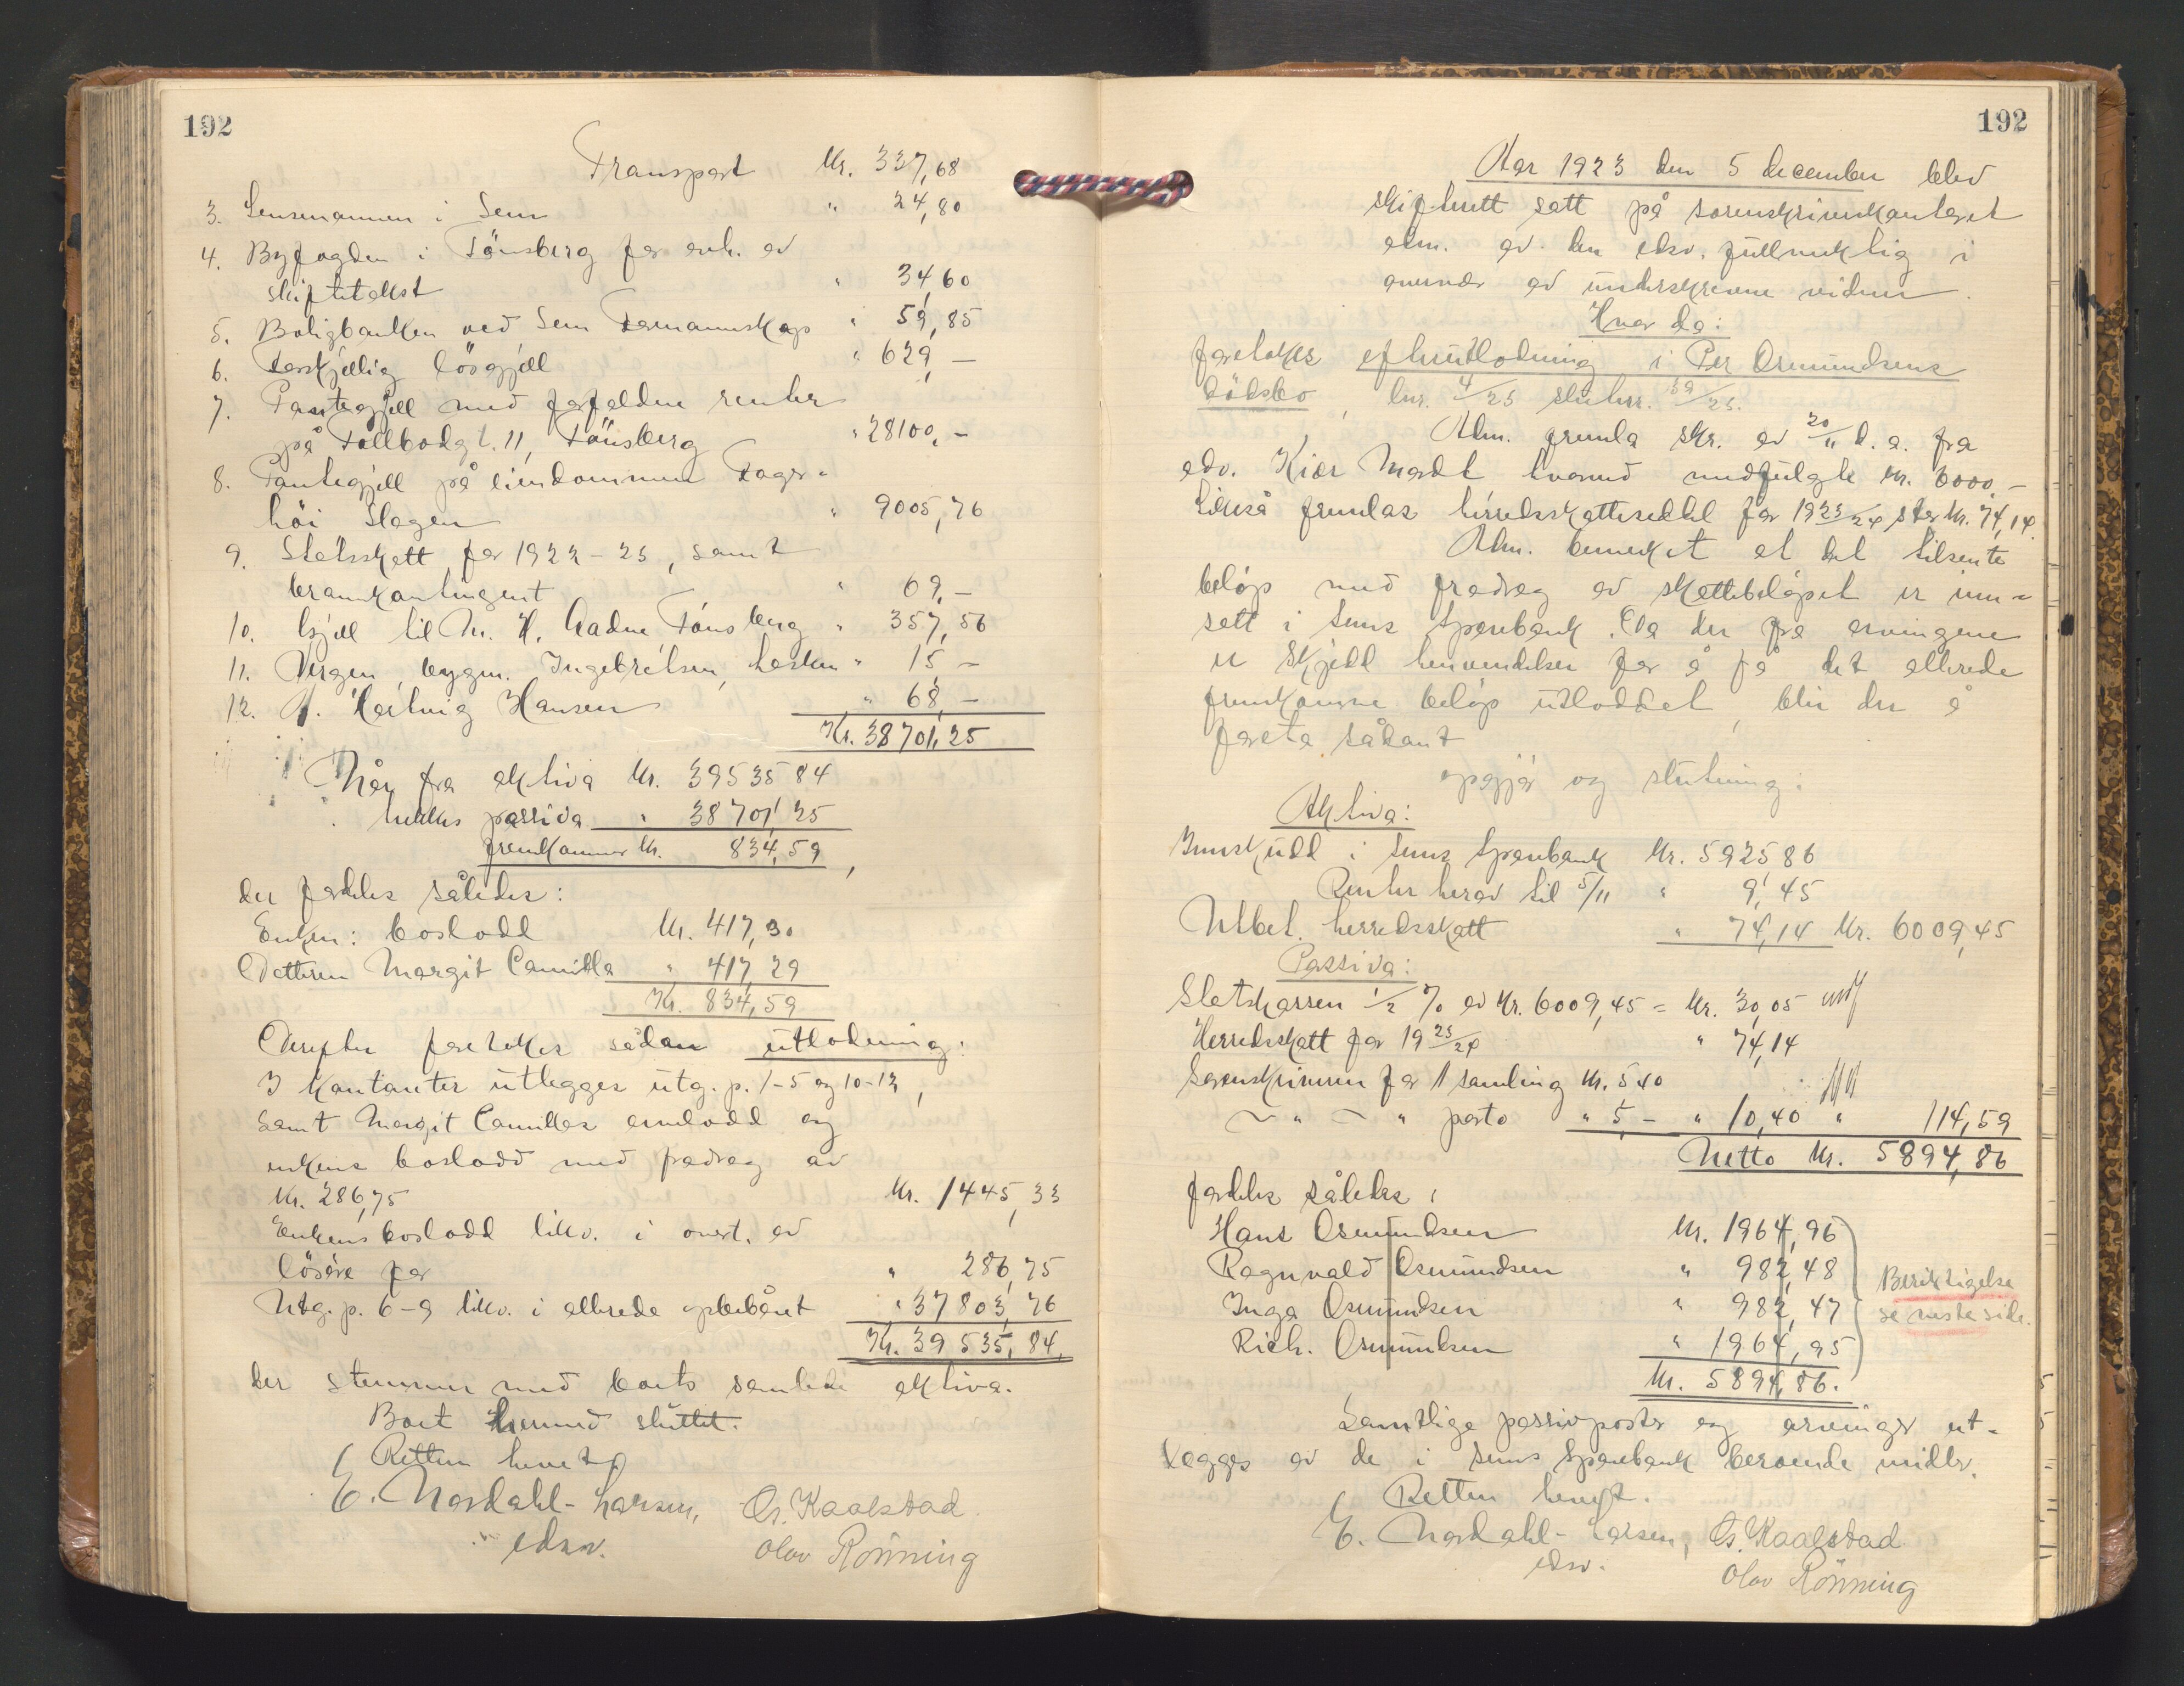 192
Transport Kr. 337,68
3. Lensmannen i Sem " 24,80
4. Byfogden i Tönsberg for avh. av
skiftetakst " 34,60
5. Boligbanken ved Sem Formannskap " 59,85
6. Forskjellig lösgjell " 629,-
7. Pantegjell med forfaldne renter
på Tollbodgt. 11, Tönsberg " 28100,-
8. Pantegjell på eiendommen Fager-
höi Slagen " 9005,76
9. Statsskatt for 1922-23, samt
brannkontingent " 69,-
10. Gjell til M. H. Aadne Tönsberg " 357,56
11. Vergen, bygm. Ingebretsen, " 15 -
12. A. Hartvig Hansen " 68,-
Kr. 38701,25
Når fra aktiva Kr. 39535 84
trekkes passiva " 38701,25
fremkommer Kr. 834,59,
der fordeles således:
Enken: boslodd Kr. 417,30
Datteren Margit Camilla " 417,29
Kr. 834,59
Derefter foretokes sådan utlodning:
I kontanter utlegges utg. p. 1-5 og 10-12,
samt Margit Camillas arvelodd og
enkens boslodd med fradrag av
Kr. 286,75 Kr. 1445,33
Enkens boslodd likv. i overt. av
lösöre for " 286,75
Utg. p. 6-9 likv. i allerede " 37803,76
Kr. 39535,84.
der stemmer med boets samlede aktiva.
Boet hermed sluttet.
Retten hevet
E. Nordahl-Larsen, Os. Kaalstad
edsv. Olav Rönning
192
Aar 1923 den 5 december blev
skifterett satt på sorenskriverkontoret
adm. av den edsv. fullmektig i
overvær av underskrevne vidner.
Hvor da:
foretokes efterutlodning i Per Osmundsens
dödsbo, bnr. 4/23 sluttnr. 39/23.
Adm. fremla skr. av 20/11 d. a. fra
adv. Kiær Mordt hvormed medfulgte kr. 6000,-
Likeså fremlas herredsskatteseddel for 1923/24 stor kr. 74,14.
Adm. bemerket at det tilsente
beløp med fradrag av skattebeløpet er inn-
satt i Sems Sparebank. Da der fra arvingene
er skjedd henvendelser for å få det allerede
fremkomne beløp utloddet, blir der å
foreta sådant
opgjør og slutning:
Aktiva:
Innskudd i Sems Sparebank Kr. 5925 86
Renter herav til 5/11 " 9,45
Utbet. herredsskatt " 74,14 Kr. 6009,45
Passiva:
Statskassen 1/2 % av Kr. 6009,45 = Kr. 30,05
Herredsskatt for 1923/24 " 74,14
Sorenskriveren for 1 samling Kr. 5 40
~ " ~ " porto " 5,- " 10,40 " 114,59
Netto Kr. 5894,86
fordeles således:
Hans Osmundsen Kr. 1964,96
Ragnvald Osmundsen " 982,48
Inga Osmundsen " 982,47
Rich. Osmundsen " 1964,95
Kr. 5894,86.
Beriktigelse
se neste side.
Samtlige passivposter og arvinger ut-
legges av de i Sems Sparebank beroende midler.
Retten hevet.
E. Nordahl-Larsen, Os. Kaalstad
edsv. Olav Rönning